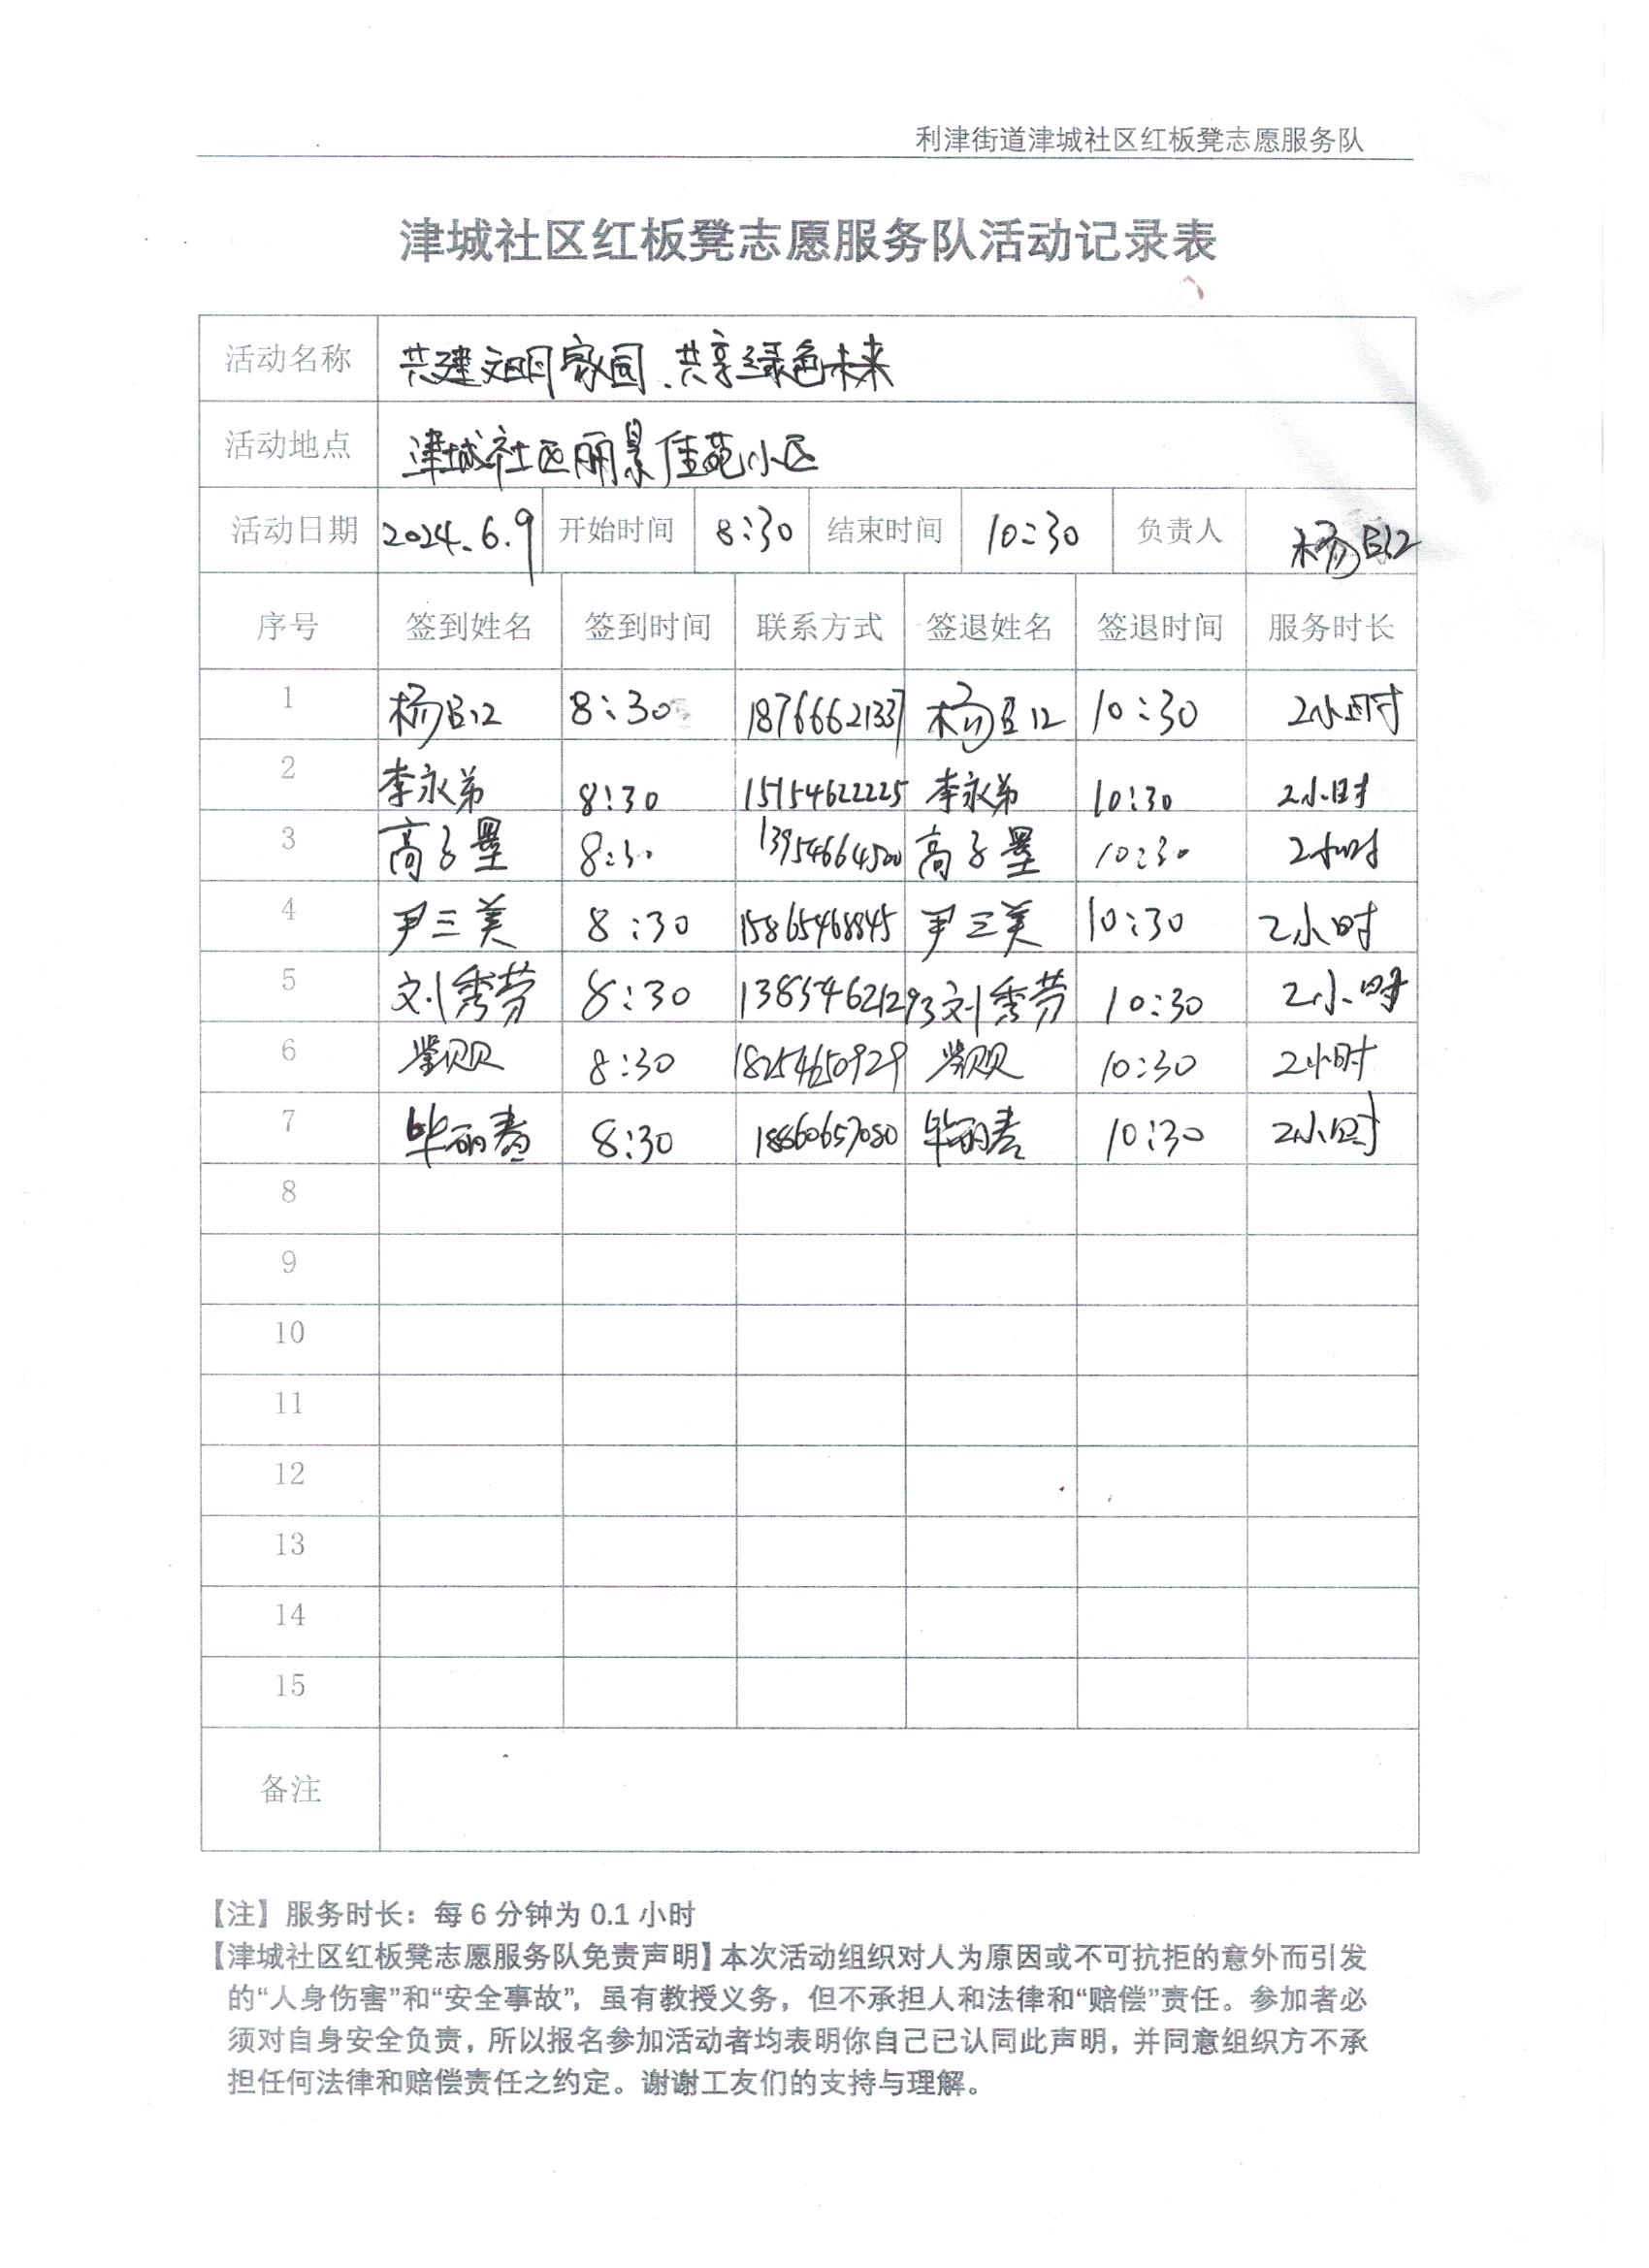 利津街道津城社区红板凳志愿服务队
津城社区红板凳志愿服务队活动记录表
活动名称 共建文明家园、共享绿色未来
活动地点 津城社区丽景佳苑小区
活动日期 2024.6.9 开始时间 8:30 结束时间 10:30 负责人 杨
序号 签到姓名 签到时间 联系方式 签退姓名 签退时间 服务时长
1 杨 8:30 18766621337 杨 10:30 2小时
2 李永弟 8:30 15154622225 李永弟 10:30 2小时
3 高子墨 8:30 13954664500 高子墨 10:30 2小时
4 尹三美 8:30 15865468845 尹三美 10:30 2小时
5 刘秀芳 8:30 13854621293 刘秀芳 10:30 2小时
6 8:30 18254650929 10:30 2小时
7 毕丽春 8:30 18860657080 毕丽春 10:30 2小时
8
9
10
11
12
13
14
15
备注
【注】服务时长：每6分钟为0.1小时
【津城社区红板凳志愿服务队免责声明】本次活动组织对人为原因或不可抗拒的意外而引发
的“人身伤害”和“安全事故”，虽有教授义务，但不承担人和法律和“赔偿”责任。参加者必
须对自身安全负责，所以报名参加活动者均表明你自己已认同此声明，并同意组织方不承
担任何法律和赔偿责任之约定。谢谢工友们的支持与理解。